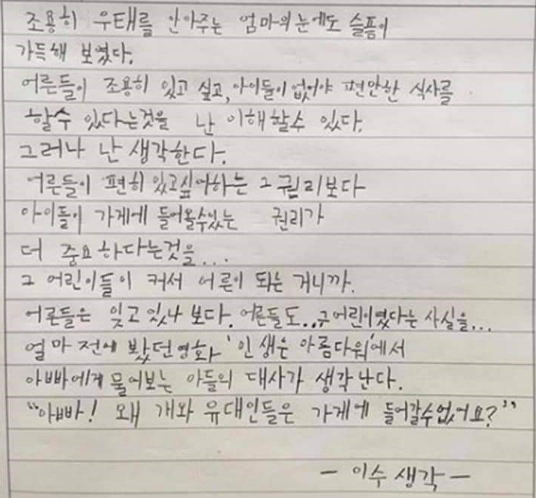 조용히 우태를 안아주는 엄마의 눈에도 슬픔이
가득해 보였다.
어른들이 조용히 있고 싶고, 아이들이 없어야 편안한 식사를
할수 있다는것을 난 이해할수 있다.
그러나 난 생각한다.
어른들이 편히 있고싶어하는 그 권리보다
아이들이 가게에 들어올수있는 권리가
더 중요하다는것을...
그 어린이들이 커서 어른이 되는 거니까.
어른들은 잊고 있나 보다. 어른들도.. 어린이였다는 사실을...
얼마 전에 봤던영화 '인생은 아름다워'에서
아빠에게 물어보는 아들의 대사가 생각난다.
"아빠! 왜 개와 유대인들은 가게에 들어갈수없어요?"
- 이수 생각 -